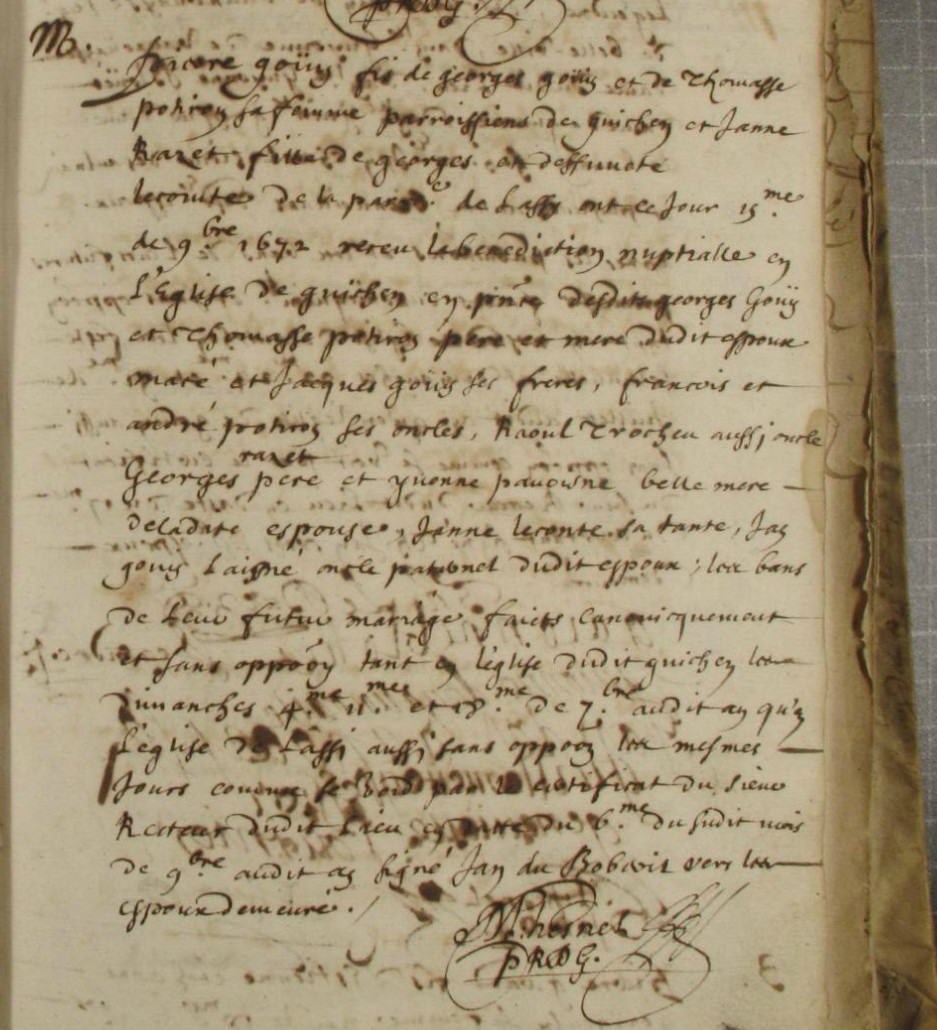 PRDG.
M.
goüys fis de georges goüis et de Thomasse
potiron sa femme parroissiens de guichen et Janne
Razet fille de georges et deffuncte
lecomte de la parr.e de Lassy ont ce Jour 15.me
de 9.bre 1672 receu la benediction nuptialle en
L'Eglise de guichen en pnce desdits georges Goüis
et Thomasse potiron pere et mere dudit espoux
et Jacques goüis ses freres, francois et
andré potiron ses oncles, Raoul Trocheu aussj oncle
razet
Georges pere et yvonne belle mere
deladite espouse, Janne leconte sa tante, Jan
gouis Laisné oncle paternel dudit espoux ; les bans
de Leur futur mariage faicts canonicquement
et sans oppoon tant en l'eglise dudit guichen les
Dimanches 4.me 11.me et 18.me de 7.bre audit an qu'en
L'eglise de Lassi aussj sans oppoon les mesmes
Jours comme se void par le certificat du sieur
Recteur dudit Lieu en datte du 6.me du sudit mois
de 9.bre audit an signé Jan du vers les
espoux demeuré ./
PRDG.